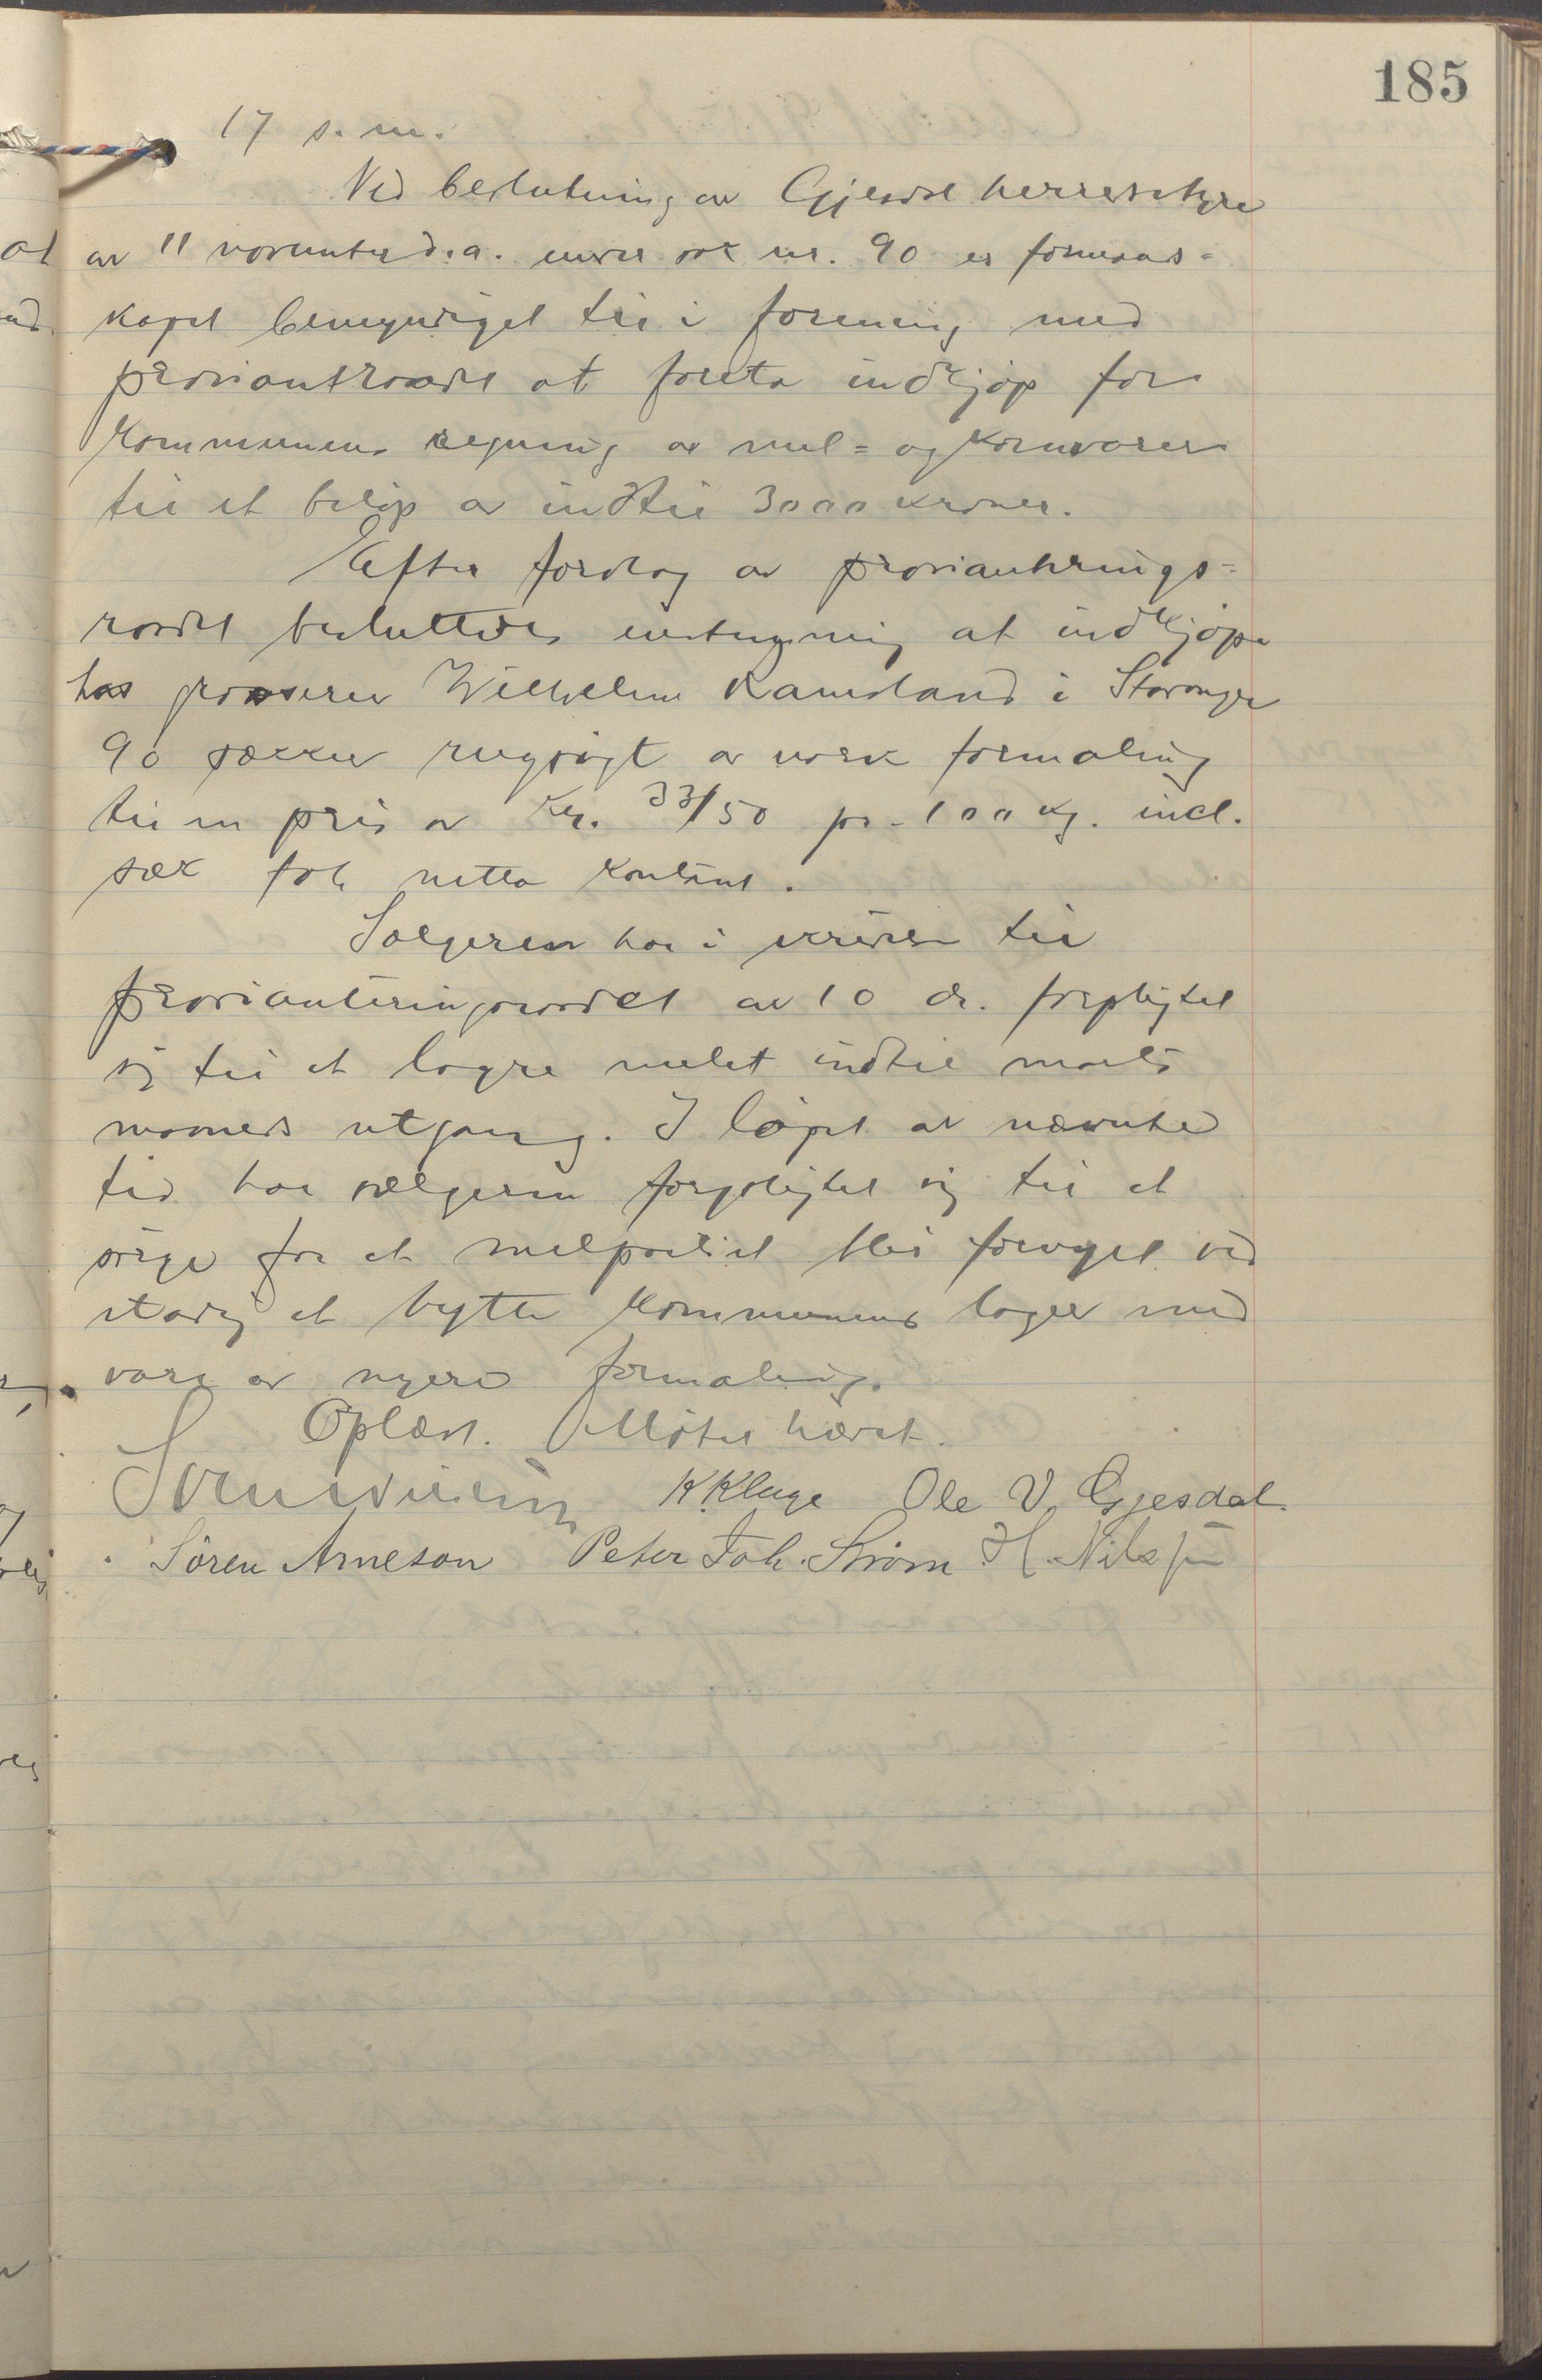 185
17 s. m.
Ved beslutning av Gjesdal herredstyre
av 11 november d. a. under sak nr. 90 er formands=
kapet bemyndiget til i forening med
proviantraadet at foreta indkjøp for
kommunens regning av mel= og kornvarer
til et beløp av indtil 3000 kroner.
Efter forslag av provianterings=
raadet besluttedes enstemmig at indkjøpe
hos grosserer Wilhelm Ramsland i Stavanger
90 sækker rugsigt av norsk formaling
til en pris av Kr. 33/50 pr. 100 kg. incl.
sæk fob netto kontant.
Sælgeren har i skrivelse til
provianteringsraadet av 10 ds. forpligtet
sig til at lagre melet indtil marts
maaneds utgang. I løpet av nævnte
tid har sælgeren forpligtet sig til at
sørge for at melpartiet blir fornyet ved
stadig at bytte kommunens lager med
vare av nyere formaling.
Oplæst. Møtet hævet.
K. Kluge Ole V. Gjesdal.
Sören Arneson Peter Joh. Ström H. Nilsson